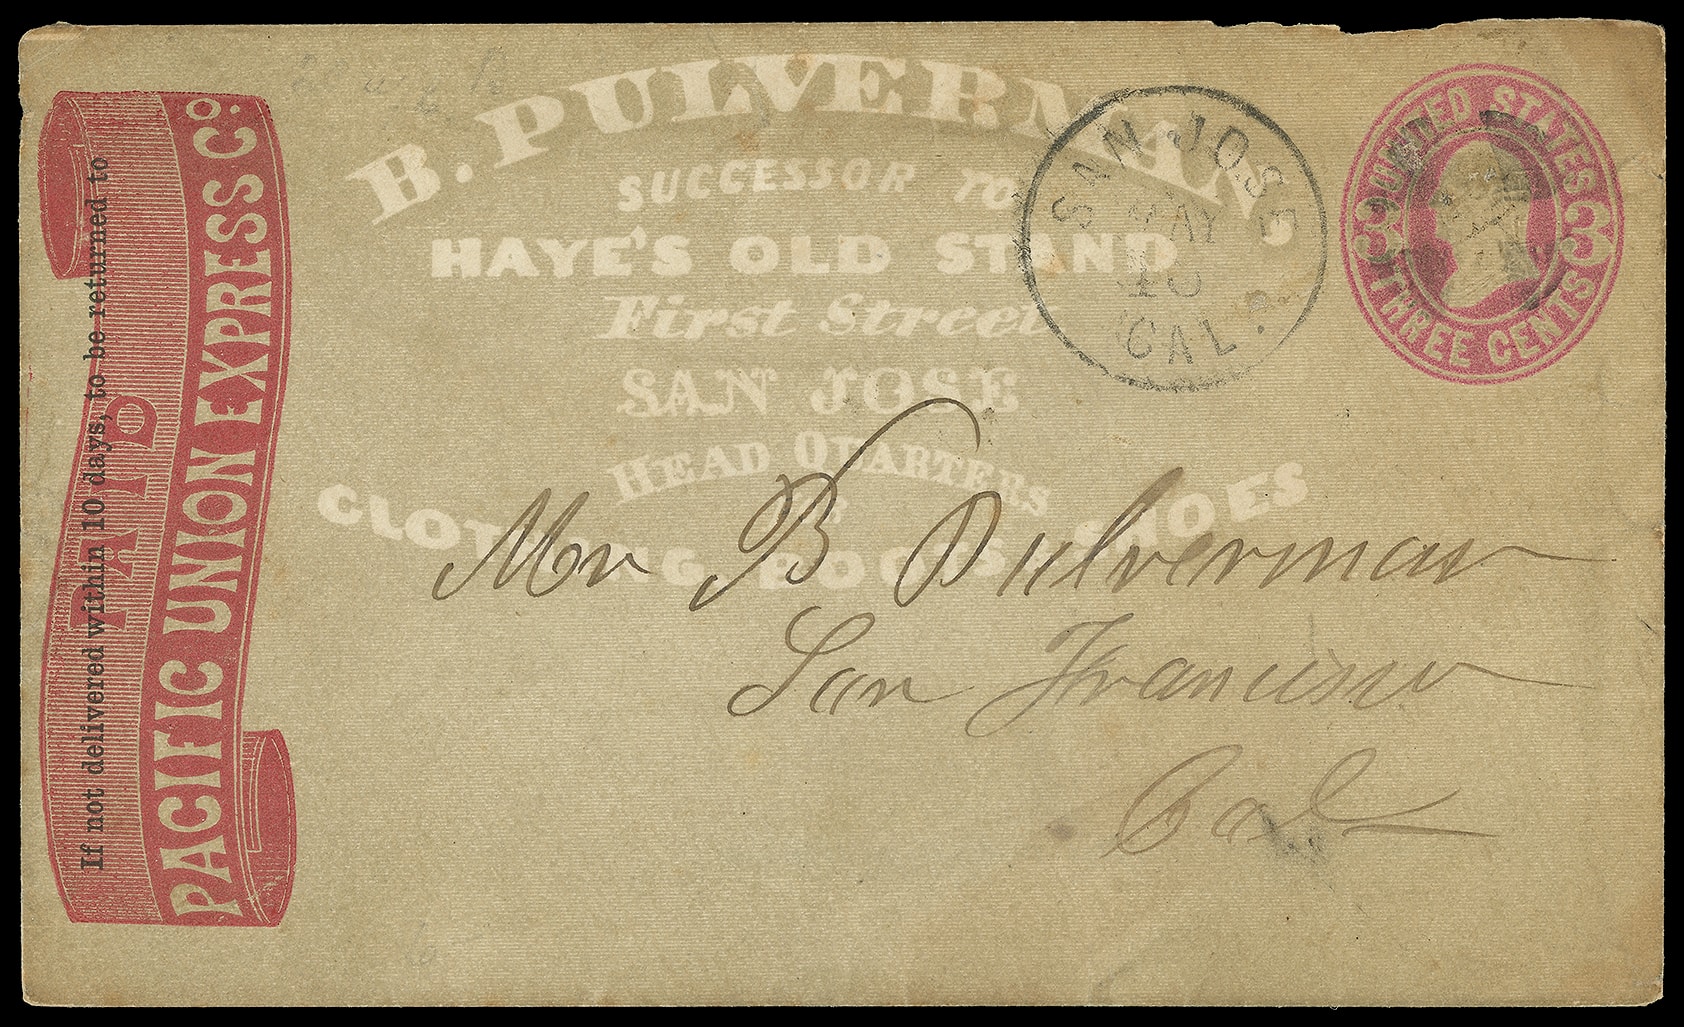 If not delivered within 10 days, to be returned to
PAID
PACIFIC UNION EXPRESS Co.
B. PULVERMAN
SUCCESSOR TO
HAYE'S OLD STAND
First Street
SAN JOSE
HEAD QUARTERS
CLOTHING, BOOTS, SHOES
SAN JOSE
MAY
10
CAL.
UNITED STATES
3 3
THREE CENTS
Mr B Pulverman
San Francisco
Cal